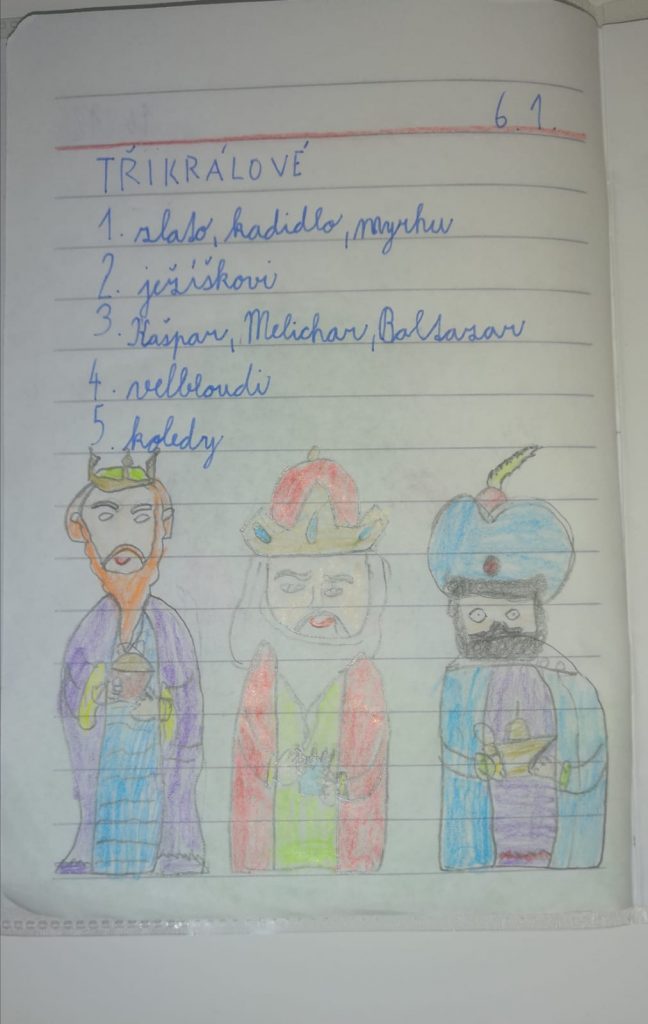 6. 1.
TŘI KRÁLOVÉ
1. zlato, kadidlo, myrhu
2. ježíškovi
3. Kašpar, Melichar, Baltazar
4. velbloudi
5. koledy